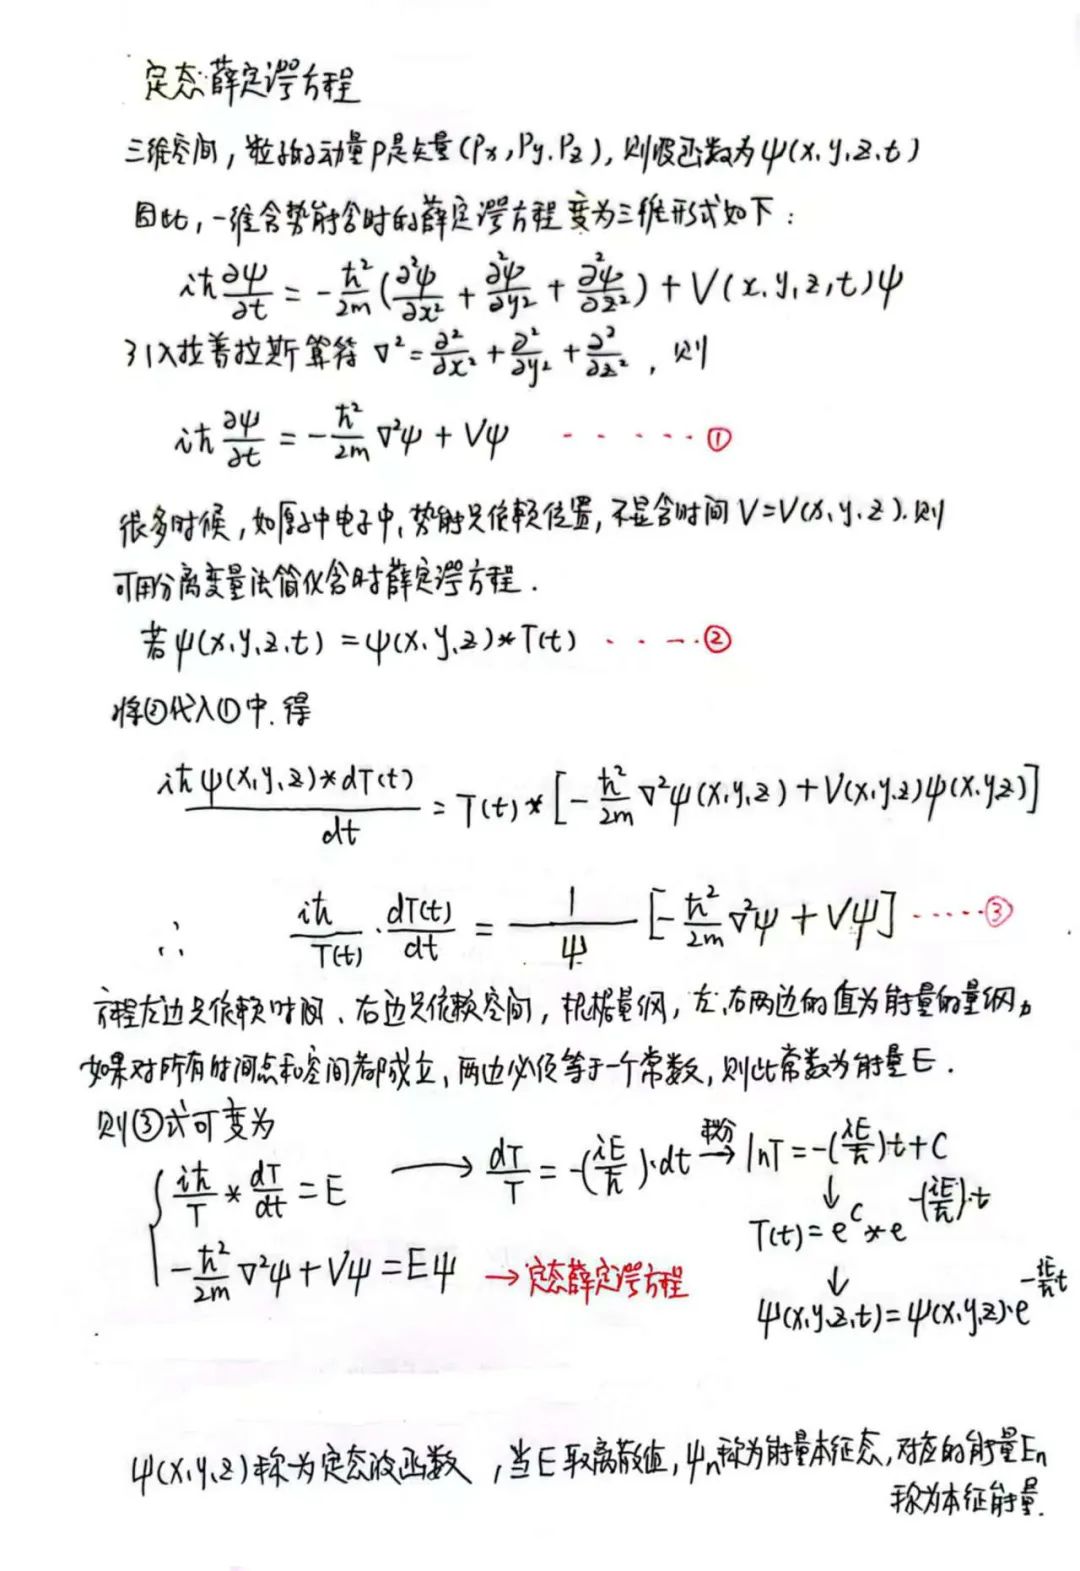 定态薛定谔方程
三维空间，粒子的动量P是矢量(Px,Py,Pz)，则波函数为ψ(x,y,z,t)
因此，一维含势能含时的薛定谔方程变为三维形式如下：
iħ ∂ψ/∂t = -ħ²/2m (∂²ψ/∂x² + ∂²ψ/∂y² + ∂²ψ/∂z²) + V(x,y,z,t)ψ
引入拉普拉斯算符 ∇² = ∂²/∂x² + ∂²/∂y² + ∂²/∂z²，则
iħ ∂ψ/∂t = -ħ²/2m ∇²ψ + Vψ ······①
很多时候，如原子中电子中，势能只依赖位置，不显含时间 V=V(x,y,z).则
可用分离变量法简化含时薛定谔方程.
若ψ(x,y,z,t) = ψ(x,y,z)*T(t) ·····②
将②代入①中.得
iħψ(x,y,z)*dT(t)/dt = T(t)*[-ħ²/2m ∇²ψ(x,y,z) + V(x,y,z)ψ(x,y,z)]
∴ iħ/T(t) · dT(t)/dt = 1/ψ [-ħ²/2m ∇²ψ + Vψ] ·····③
方程左边只依赖时间、右边只依赖空间，根据量纲，左、右两边的值为能量的量纲。
如果对所有时间点和空间都成立，两边必须等于一个常数，则此常数为能量E.
则③式可变为
iħ/T * dT/dt = E → dT/T = -(iE/ħ)·dt 积分→ lnT = -(iE/ħ)t + C
↓
T(t) = e^C * e^-(iE/ħ)·t
-ħ²/2m ∇²ψ + Vψ = Eψ → 定态薛定谔方程
↓
ψ(x,y,z,t) = ψ(x,y,z)·e^-iE/ħ t
ψ(x,y,z)称为定态波函数，当E取离散值，ψn称为能量本征态，对应的能量En
称为本征能量.